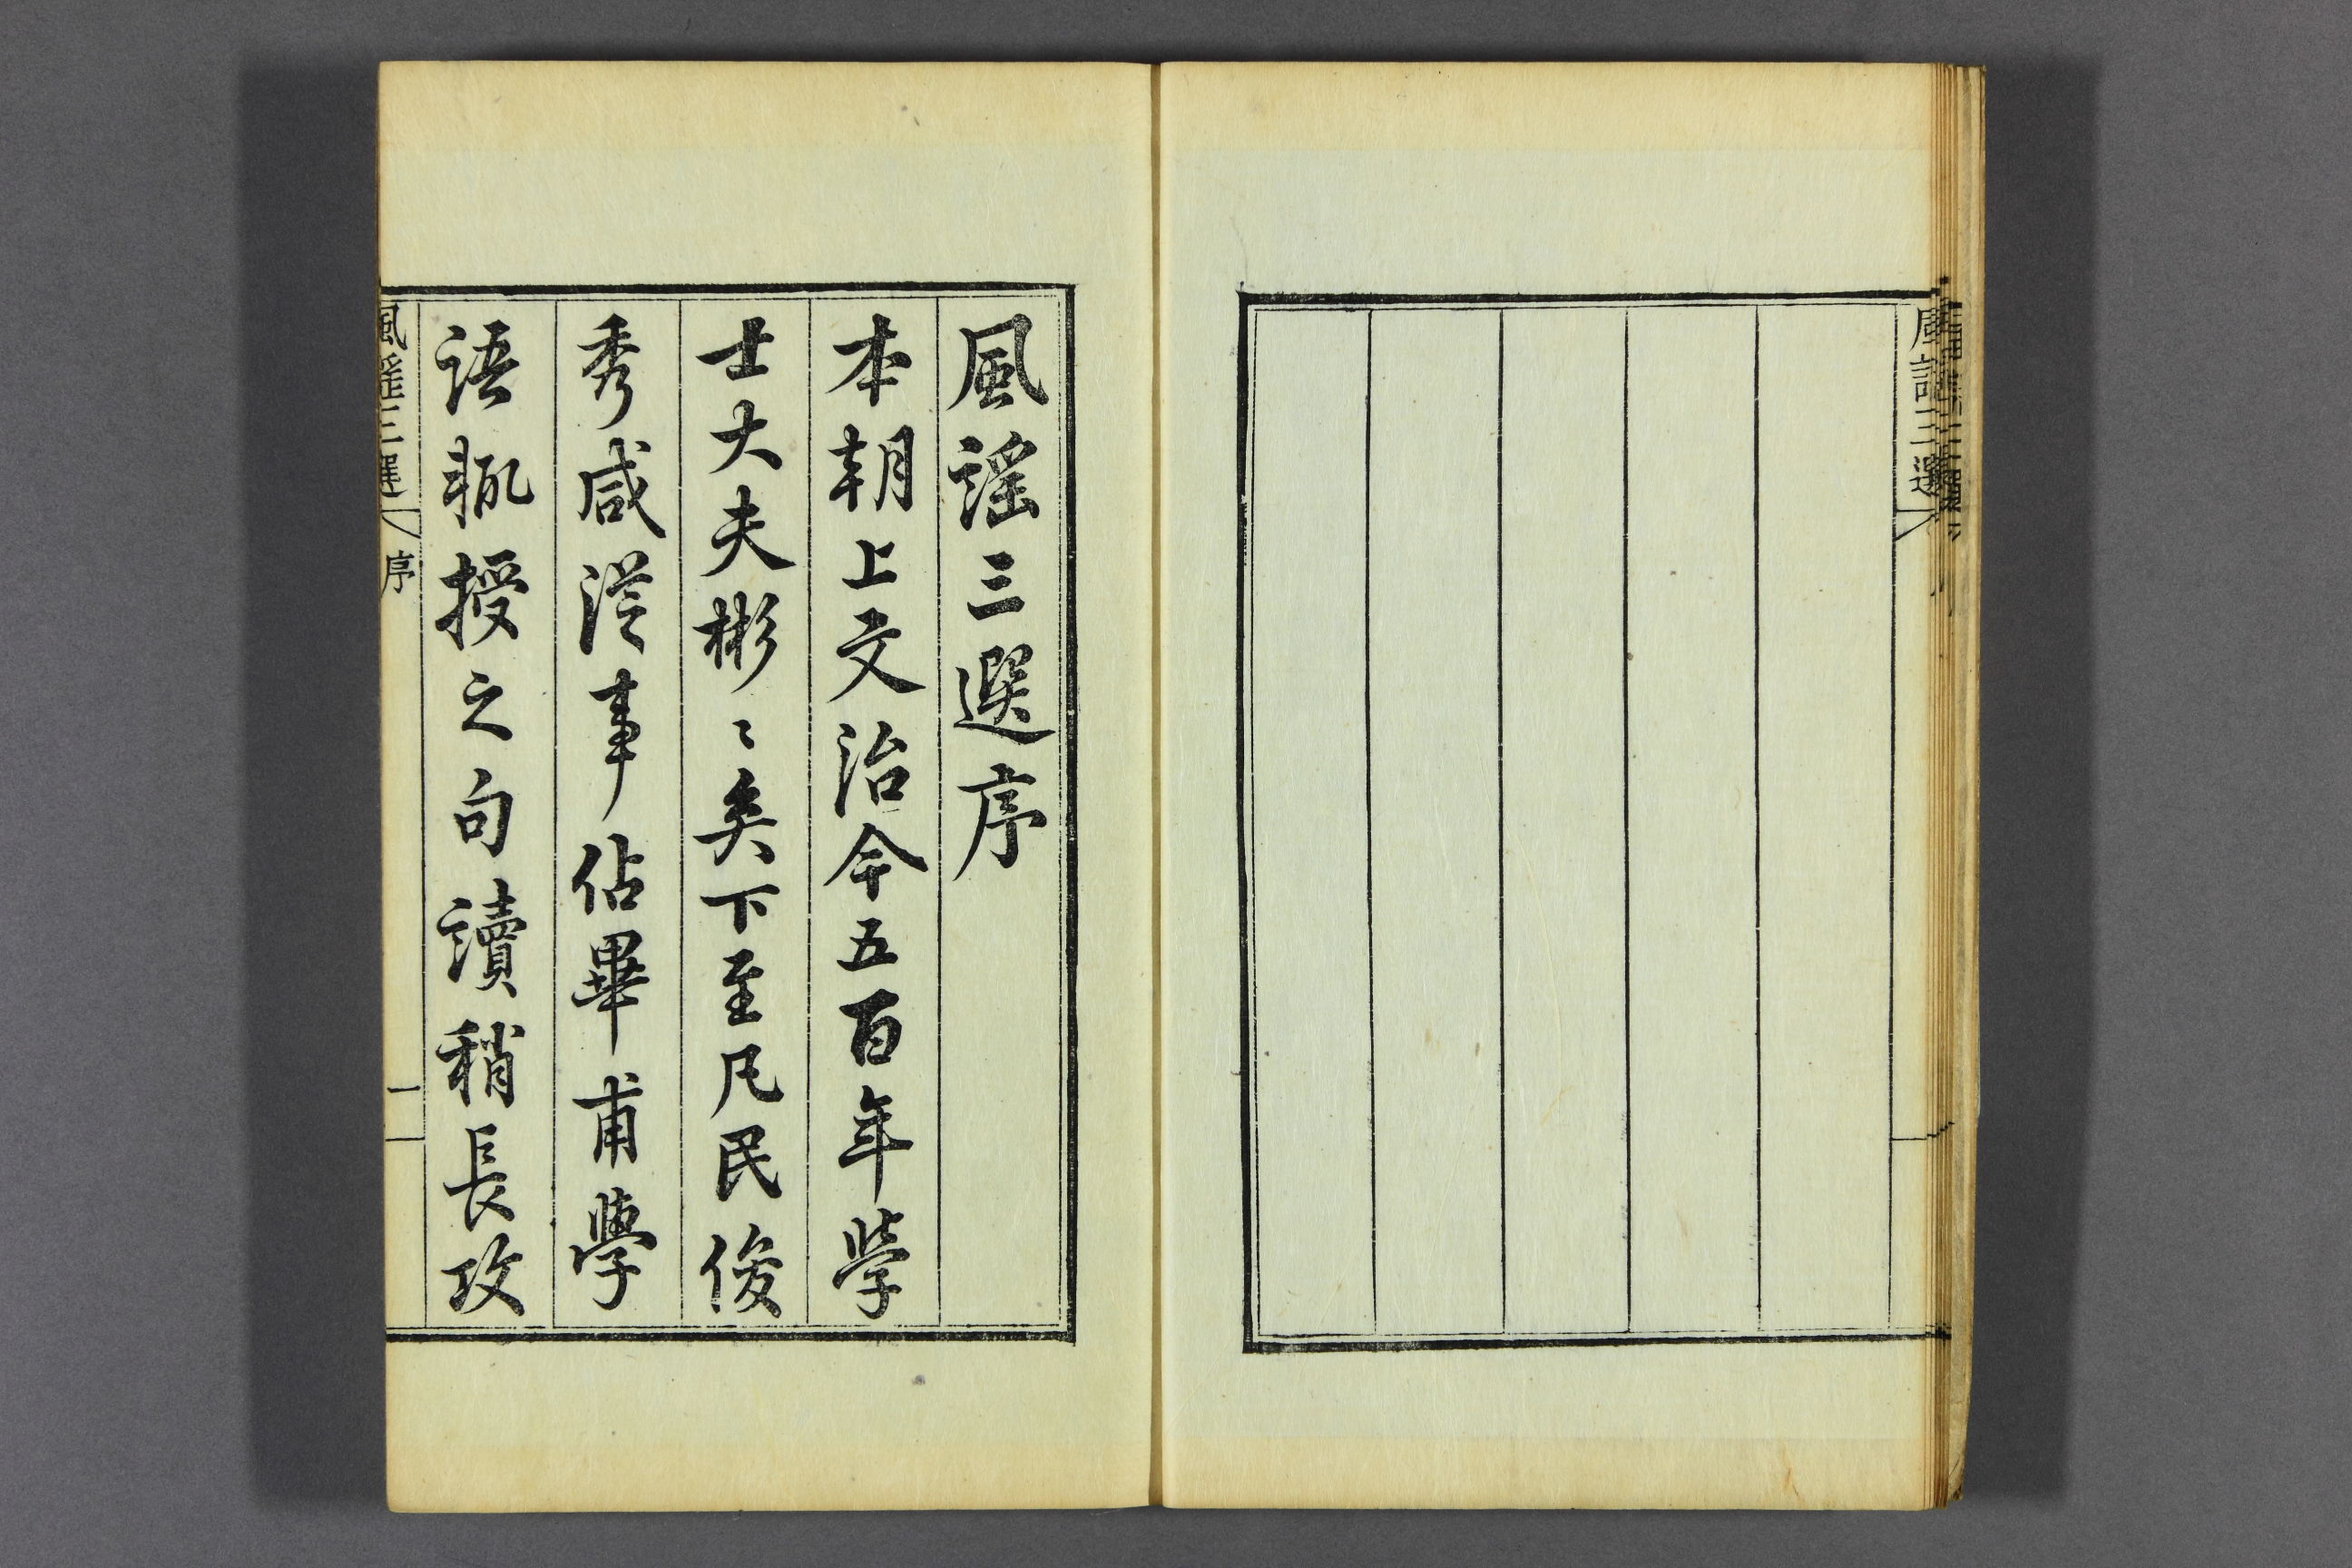 風謠三選序
本朝上文治今五百年學
士大夫彬〻矣下至凡民俊
秀咸從事佔畢甫學
語輒授之句讀稍長攻
風謠三選 序 一